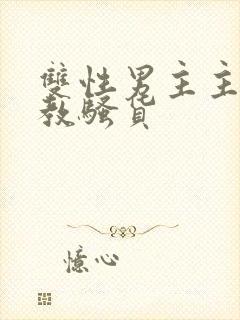 雙性男主主
教騷貨
憶心